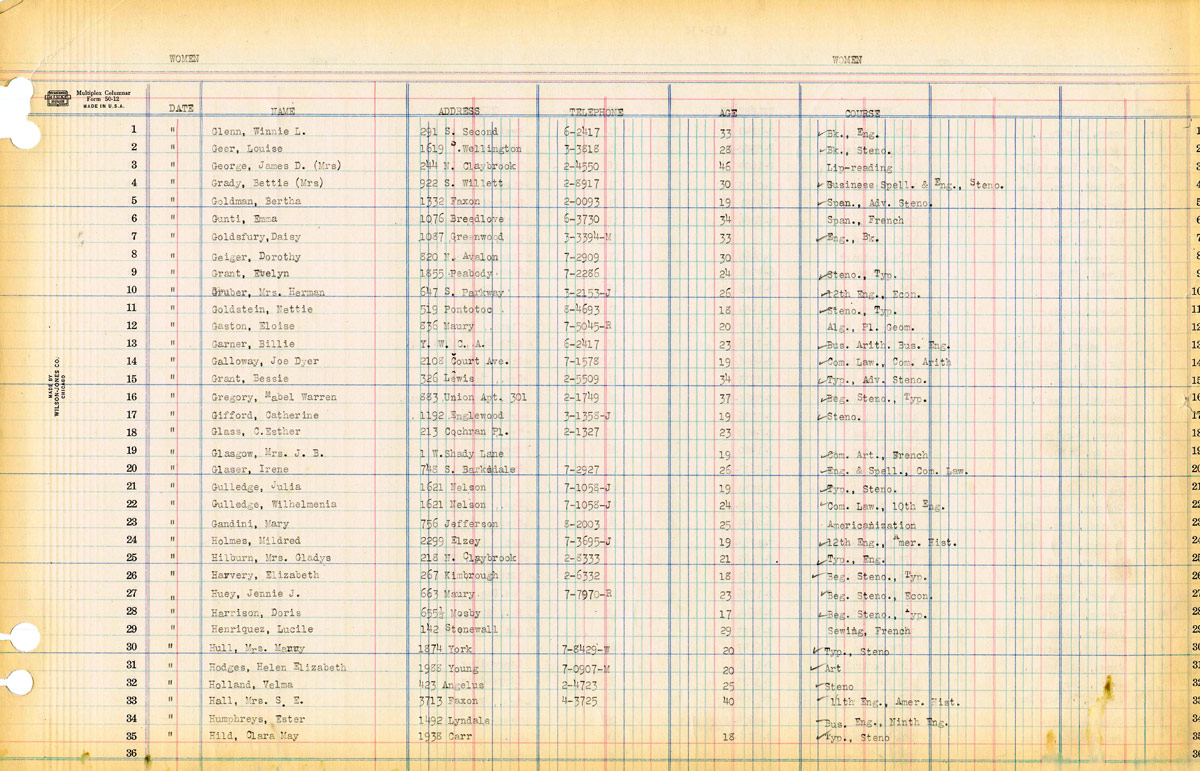 WOMEN WOMEN
Multiplex Columnar
Form 50-12
MADE IN U.S.A.
DATE NAME ADDRESS TELEPHONE AGE COURSE
1 " Glenn, Winnie L. 291 S. Second 6-2417 33 Bk., Eng. 1
2 " Geer, Louise 1619 S. Wellington 3-3818 28 Bk., Steno. 2
3 " George, James D. (Mrs) 244 N. Claybrook 2-4550 46 Lip-reading 3
4 " Grady, Bettie (Mrs) 922 S. Willett 2-8917 30 Business Spell. & Eng., Steno. 4
5 " Goldman, Bertha 1332 Faxon 2-0093 19 Span., Adv. Steno. 5
6 " Gunti, Emma 1076 Breedlove 6-3730 34 Span., French 6
7 " Goldsfury,Daisy 1087 Greenwood 3-3394-M 33 Eng., Bk. 7
8 " Geiger, Dorothy 820 N. Avalon 7-2909 30 8
9 " Grant, Evelyn 1855 Peabody 7-2286 24 Steno., Typ. 9
10 " Gruber, Mrs. Herman 647 S. Parkway 3-2153-J 26 12th Eng., Econ. 10
11 " Goldstein, Nettie 519 Pontotoc 8-4693 18 Steno., Typ. 11
12 " Gaston, Eloise 836 Maury 7-5045-R 20 Alg., Pl. Geom. 12
13 " Garner, Billie Y. W. C. A. 6-2417 23 Bus. Arith. Bus. Eng. 13
14 " Galloway, Joe Dyer 2108 Court Ave. 7-1578 19 Com. Law., Com. Arith 14
15 " Grant, Bessie 326 Lewis 2-5509 34 Typ., Adv. Steno. 15
16 " Gregory, Mabel Warren 883 Union Apt. 301 2-1749 37 Beg. Steno., Typ. 16
17 " Gifford, Catherine 1192 Englewood 3-1358-J 19 Steno. 17
18 " Glass, C.Esther 213 Cochran Pl. 2-1327 23 18
19 " Glasgow, Mrs. J. B. 1 W.Shady Lane 19 Com. Art., French 19
20 " Glaser, Irene 748 S. Barksdale 7-2927 26 Eng. & Spell., Com. Law. 20
21 " Gulledge, Julia 1621 Nelson 7-1058-J 19 Typ., Steno. 21
22 " Gulledge, Wilhelmenia 1621 Nelson 7-1058-J 24 Com. Law., 10th Eng. 22
23 " Gandini, Mary 756 Jefferson 8-2003 25 Americanization 23
24 " Holmes, Mildred 2299 Elzey 7-3695-J 19 12th Eng., Amer. Hist. 24
25 " Hilburn, Mrs. Gladys 218 N. Claybrook 2-8333 21 Typ., Eng. 25
26 " Harvery, Elizabeth 267 Kimbrough 2-6332 18 Beg. Steno., Typ. 26
27 " Huey, Jennie J. 663 Maury 7-7970-R 23 Beg. Steno., Econ. 27
28 " Harrison, Doris 655½ Mosby 17 Beg. Steno., Typ. 28
29 " Henriquez, Lucile 142 Stonewall 29 Sewing, French 29
30 " Hull, Mrs. 1874 York 7-8429-W 20 Typ., Steno 30
31 " Hodges, Helen Elizabeth 1988 Young 7-0907-M 20 Art 31
32 " Holland, Velma 423 Angelus 2-4723 25 Steno 32
33 " Hall, Mrs. S. E. 3713 Faxon 4-3725 40 11th Eng., Amer. Hist. 33
34 " Humphreys, Ester 1492 Lyndale Bus. Eng., Ninth Eng. 34
35 " Hild, Clara May 1938 Carr 18 Typ., Steno 35
36 36
MADE BY
WILSON-JONES CO.
CHICAGO